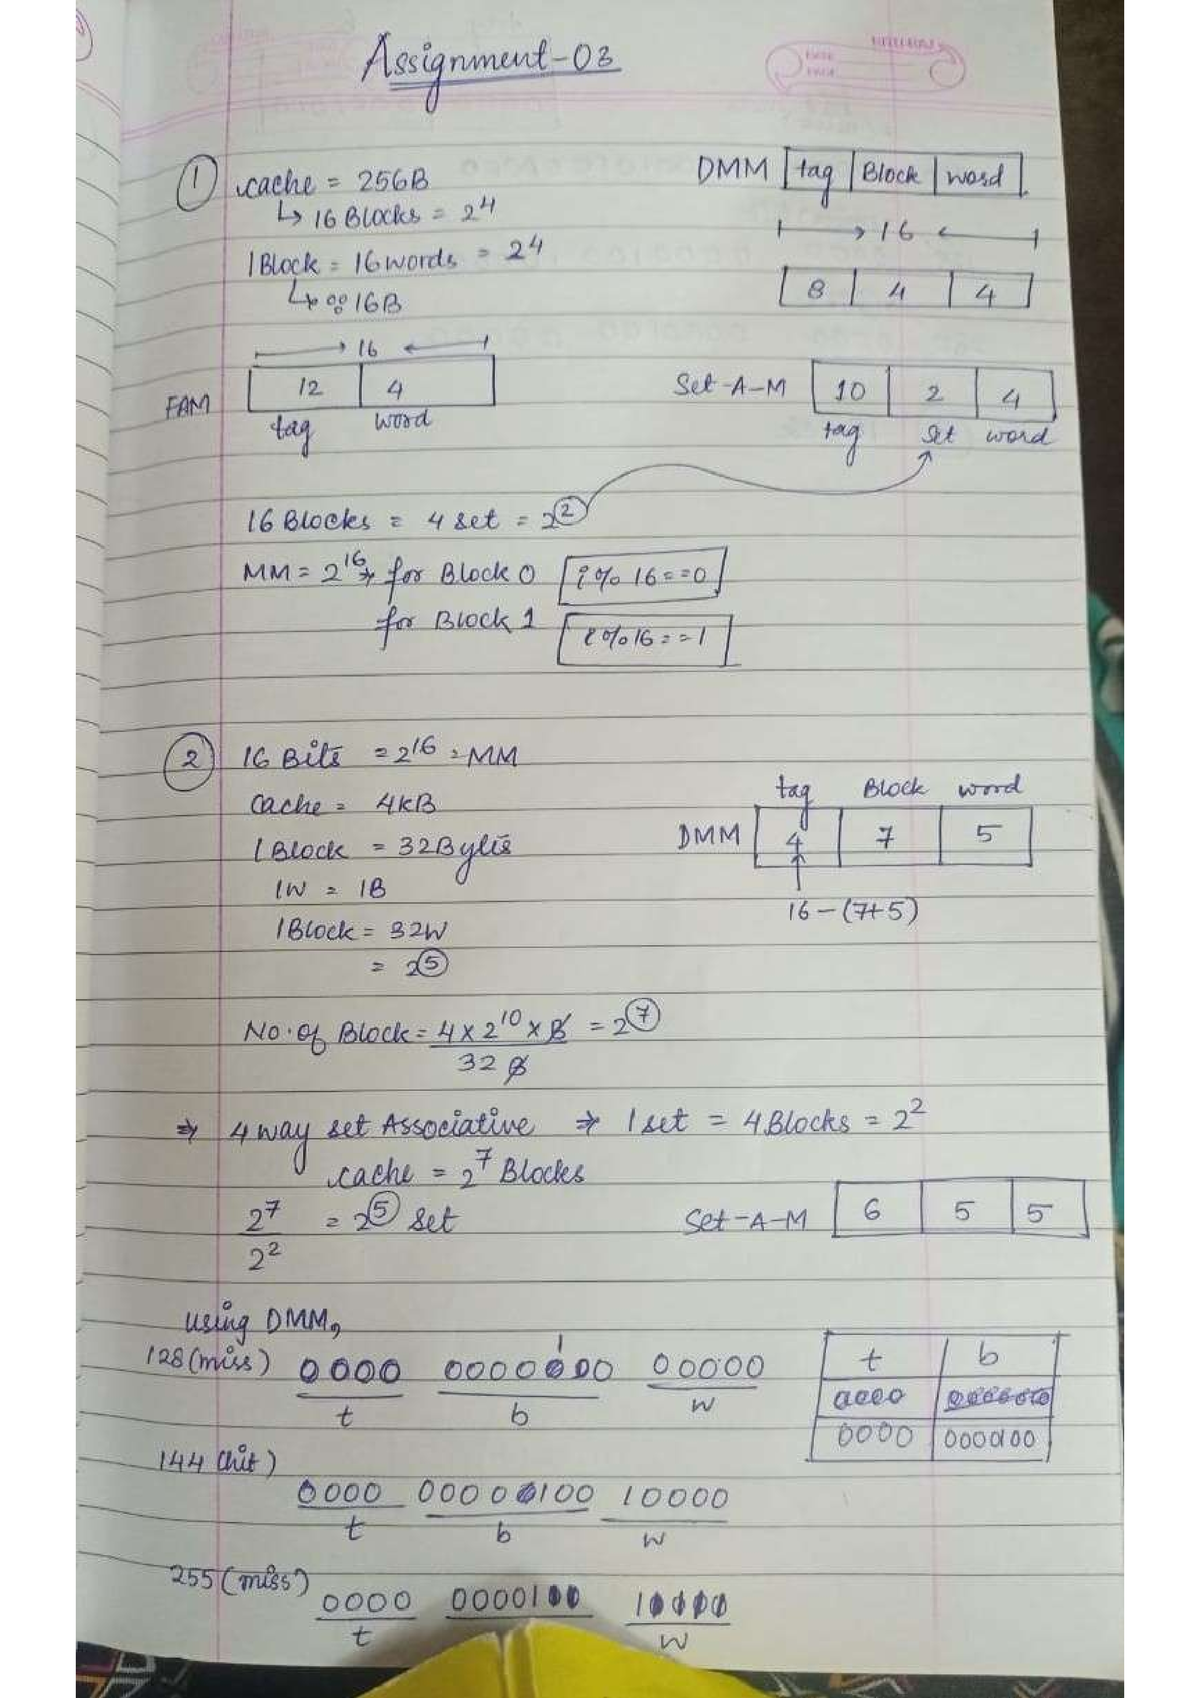 Assignment-03
DATE
PAGE
1 cache = 256B
↳ 16 Blocks = 2^4
1 Block = 16 words = 2^4
↳ ∴ 16B
DMM tag Block word
16
8 4 4
16
FAM 12 4
tag word
Set-A-M 10 2 4
tag set word
16 Blocks = 4 set = 2^2
MM = 2^16 → for Block 0 i % 16 == 0
for Block 1 i % 16 == 1
2 16 Bits = 2^16 = MM
Cache = 4kB
1 Block = 32 Bytes
1W = 1B
1 Block = 32W
= 2^5
tag Block word
DMM 4 7 5
16 - (7+5)
No. of Block = 4 x 2^10 x B / 32 B = 2^7
⇒ 4 way set Associative ⇒ 1 set = 4 Blocks = 2^2
cache = 2^7 Blocks
2^7 / 2^2 = 2^5 set
Set-A-M 6 5 5
using DMM,
128 (miss) 0000 0000100 00000
t b w
t b
0000
0000 0000100
144 (hit)
0000 00000100 10000
t b w
255 (miss)
0000 0000100
t w